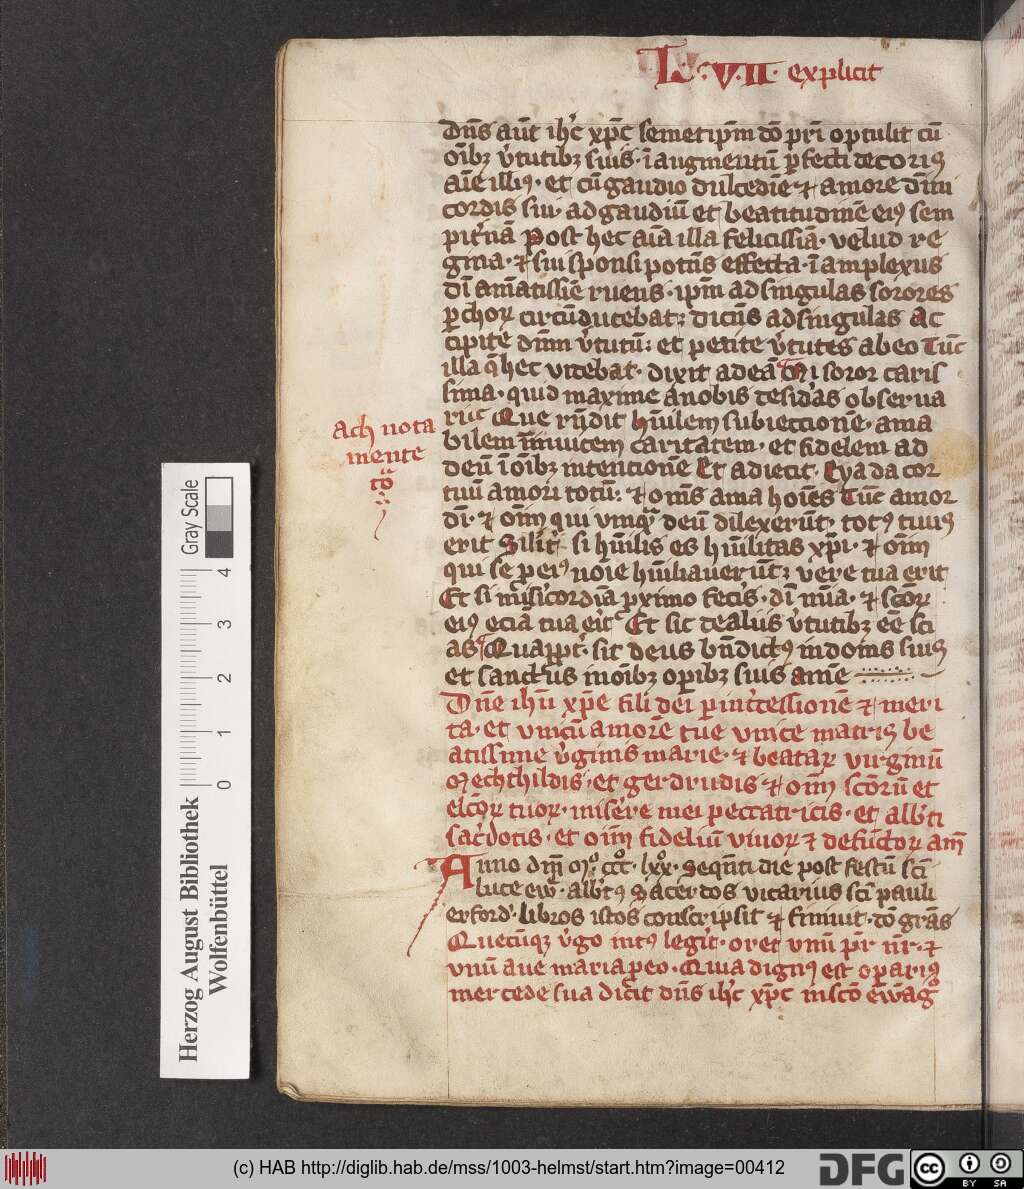 L · VII · explicit
Dn̄s aut̄ ih̄c xp̄c semetip̄m dō pr̄i optulit cū
oīb; v̓tutib; suis · ī augmentū p̲fecti decoris
aīe illiꝰ · et cū gaudio dulcedīe ⁊ amore diuini
cordis sui · ad gaudiū et beatitudinē eiꝰ sem
pit̓nā Post hec aīa illa felicissīa · velud re
gina · ⁊ sui sponsi potēs effecta · ī amplexus
dī amātissīe ruens · ip̄m ad singulas sorores
p̲ choꝝ circūducebat; dicēs ad singulas Ac
cipite dn̄m v̓tutū; et petite v̓tutes ab eo Tūc
illa q̄ hec videbat · dixit ad eā Mi soror caris
sima · quid maxime a nobis desid̓as obserua
ri Que rn̄dit hūilem subiectionē · ama
bilem īnuicem caritatem · et fidelem ad
deū ī oīb; intencionē Et adiecit · Eya da cor
tuū amori totū; ⁊ om̄s ama hoīes Tūc amor
dī · ⁊ oīm qui vmq̄ deū dilexerūt · totꝰ tuus
erit Silit̓ si hūilis es hūilitas xp̄i · ⁊ oīm
qui se p̲ eiꝰ noīe hūiliauerūt; vere tua erit
Et si mīsicordiā p̱ximo fecis̓ · dī mīa · ⁊ scōꝝ
eiꝰ eciā tua erit Et sic de aliis v̓tutib; eē sci
as Quapp̱t̓ · sit deus bn̄dictꝰ in donis suis
et sanctus in oīb; op̲ib; suis amē
Dn̄e ih̄u xp̄e fili dei p̲ int̓cessionē ⁊ meri
ta · et vnicū amorē tue vnice matris be
atissime v̓ginis marie · ⁊ beataꝝ virginū
Mechthildis · et gerdrudis ⁊ oīm scōrū et
elc̄oꝝ tuoꝝ · misēre mei peccatricis · et alb̓ti
sac̓dotis · et oīm fideliū viuoꝝ ⁊ defūctoꝝ am̄
Anno dn̄i M° ccc° · lxx° · Seq̄nti die post festū sc̄i
luce ew̄ · alb̓tꝰ Sacerdos vicarius sc̄i pauli
erford̓ · libros istos conscripsit ⁊ finiuit · dō grās
Quecūq; v̓go intꝰ legit̓ · oret vnū pr̄ nr̄ · ⁊
vnū aue maria p̲ eo · Quia dignꝰ est op̲ariꝰ
mercede sua dicit dn̄s ih̄c xp̄c in sc̄o ew̄ag̓
Ach nota
mente
tō
Herzog August Bibliothek
Wolfenbüttel
Gray Scale
0 1 2 3 4
(c) HAB http://diglib.hab.de/mss/1003-helmst/start.htm?image=00412
DFG
cc
BY SA